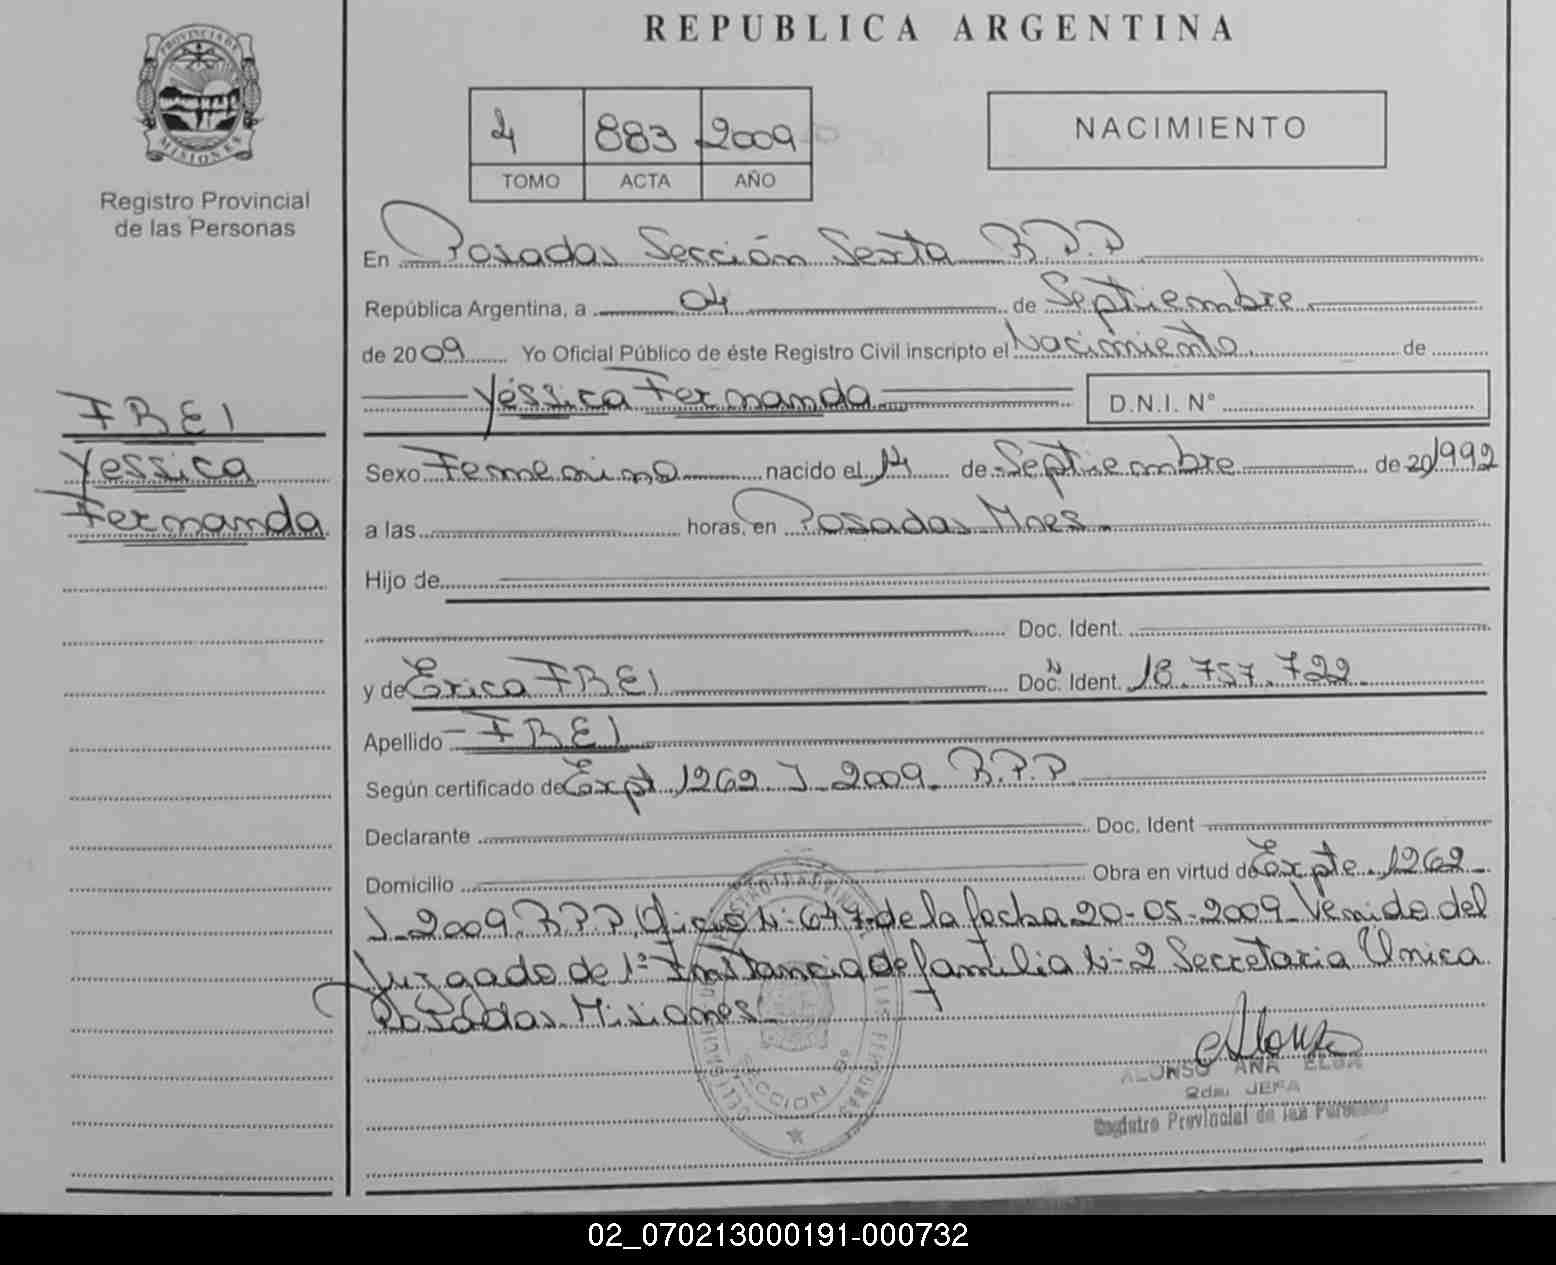 REPUBLICA ARGENTINA
PROVINCIA DE
MISIONES
Registro Provincial
de las Personas
4 883 2009
TOMO ACTA AÑO
NACIMIENTO
En Posadas Sección Sexta R.P.P
República Argentina, a 04 de Septiembre
de 2009 Yo Oficial Público de éste Registro Civil inscripto el Nacimiento de
Yéssica Fernanda D.N.I. N°
FREI
Yessica
Fernanda
Sexo Femenino nacido el 14 de Septiembre de 20 1992
a las horas, en Posadas Mnes.
Hijo de
Doc. Ident.
y de Erica FREI Doc. Ident. N 18.757.722
Apellido FREI
Según certificado de Expt 1262 J 2009 R.P.P
Declarante Doc. Ident
Domicilio Obra en virtud de Expte. 1262
J 2009 R.P.P. Oficio N-647 de la fecha 20-05-2009 Venido del
Juzgado de 1° Instancia de familia N-2 Secretaria Unica
Posadas Misiones
SECCION 6°
ALONSO ANA ELSA
2da. JEFA
Registro Provincial de las Personas
02_070213000191-000732